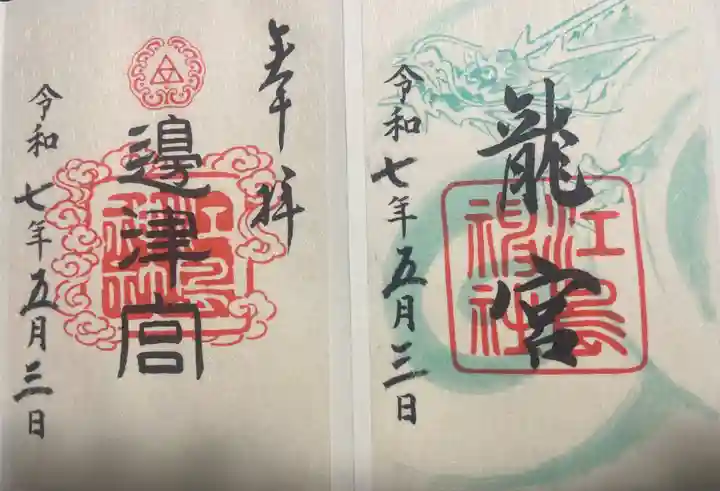 奉拝
邉津宮
江島神社
令和七年五月三日
龍宮
江島神社
令和七年五月三日